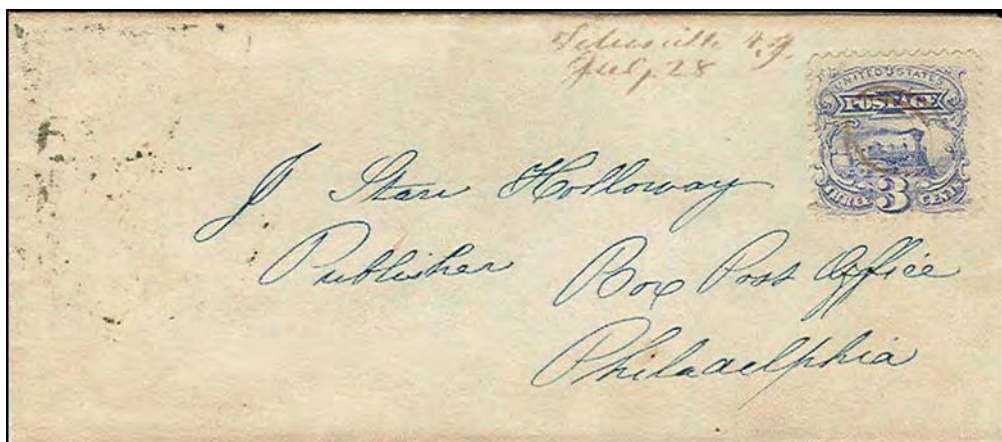 Titusville N.J.
July 28
UNITED STATES
POSTAGE
THREE 3 CENTS
J Starr Holloway
Publisher Box Post Office
Philadelphia